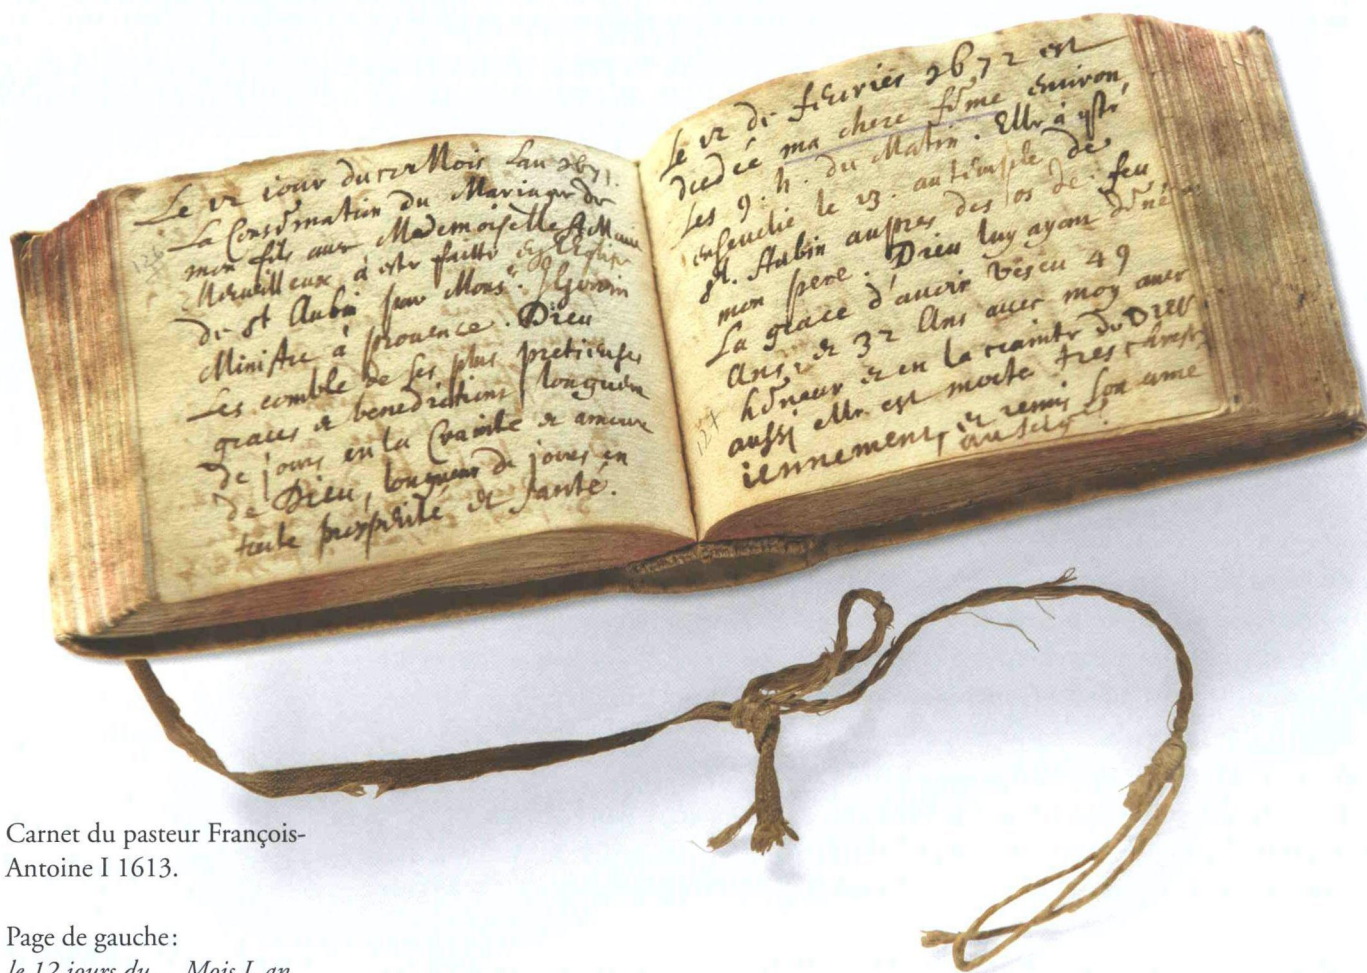 Le 12 iour du Mois Lan 1671.
La Consõmation du Mariage de
mon fils auec Mademoiselle
Merueilleux à este faitte Eglise
de St Aubin par Monsr.
Ministre à prouence. Dieu
Les comble de ses plus pretieuses
graces & benedictions longueur
de jours en la Crainte & amour
de Dieu, longueur de jours en
toute prosperité & santé.
126
Le 12 de feurier 1672 est
decedée ma chere fõme enuiron
Les 9. h. du Matin. Elle à esté
enseuelie le 13. au temple de
St. Aubin aupres des os de feu
mon pere. Dieu luy ayant dõné
La grace d'auoir vescu 49
Ans, & 32 Ans auec moy auec
hõneur & en la crainte de Dieu.
aussi elle est morte tres chrest
iennement, & remis son ame
127
Carnet du pasteur François-
Antoine I 1613.
Page de gauche:
le 12 jours du ... Mois L an